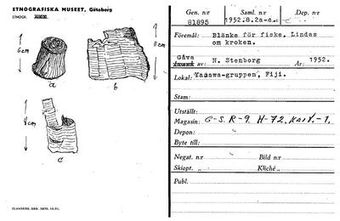 ETNOGRAFISKA MUSEET, Göteborg
a
b
8 cm
4cm
c
Gen. nr
81895
Saml. nr
1952.8.2a-d.
Dep. nr
Föremål: Blänke för fiske. Lindas
om kroken.
Gåva
av N. Stenborg
År 1952.
Lokal: Yasawa-gruppen, Fiji.
Stam:
Utställt:
Magasin: G-S. R-9. H-72, Kart.-1.
Depon:
Byte till:
Negat. nr
Bild nr
Skiopt. nr
Kliché
Publ.